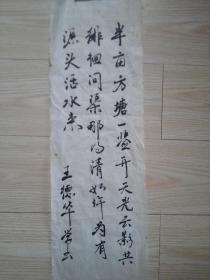 半亩方塘一鉴开天光云影共
徘徊问渠那得清如许为有
源头活水来
王德华学书